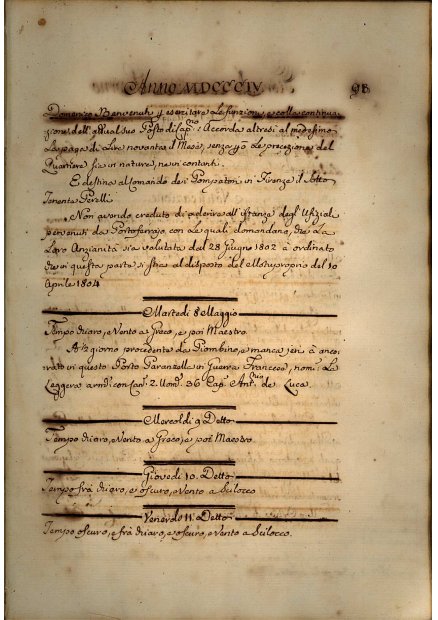 Anno MDCCCIV. 98
Domenico Benvenuti p esercitare le funzioni, e colla continua-
zione dell'attual suo Posto di Cap.no: Accorda altresì al medesimo
La paga di Lire novanta il Mese, senza però le precisione del
Quartiere sia in natura, ne in contanti.
E destina al Comando dei Pompatori in Firenze il Sotto
Tenente Perelli
Non avendo creduto di aderire all'istanza degl'Ufiziali
pervenuti da Portoferrajo con Le quali domandano, che La
Loro Anzianità sia valutata dal 28 Giugno 1802 à ordinato
che in questa parte si stia al disposto del Motuproprio del 10
Aprile 1804
Martedì 8 Maggio
Tempo chiaro, e Vento a Greco, e poi Maestro.
A ½ giorno procedente da Piombino, e manca jeri à anco-
rato in questo Porto Paranzella in Guerra Francese, nom: La
Leggera arm: con Can: 2. Uom: 36 Cap. Ant.nio de Luca.
Mercoldì 9 Detto
Tempo chiaro, Vento a Greco, e poi Maestro.
Giovedì 10. Detto
Tempo frà chiaro, e oscuro, e Vento a Scilocco
Venerdì 11. Detto
Tempo oscuro, e frà chiaro, e oscuro, e Vento a Scilocco.